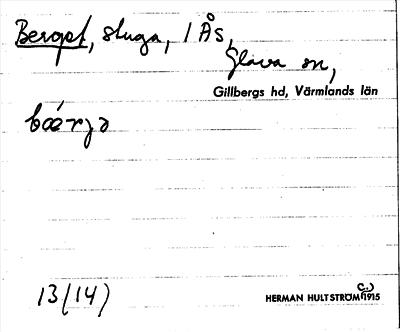 Berget, stuga, 1 Ås,
Glava sn,
Gillbergs hd, Värmlands län
bǽrjə
13(14)
HERMAN HULTSTRÖM (C.) 1915